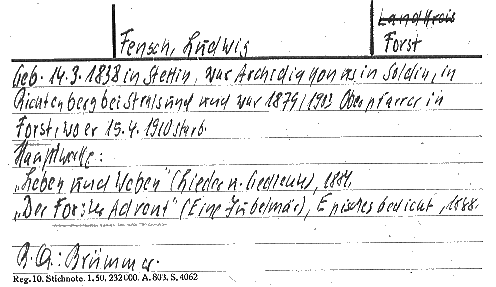 Landkreis
Fensch, Ludwig
Forst
Geb. 14.3.1838 in Stettin, war Archidiakonus in Soldin, in
Richtenberg bei Stralsund und war 1879/1903 Oberpfarrer in
Forst, wo er 15.4.1910 starb.
Hauptwerke:
„Leben und Weben" (Lieder u. Gedichte), 1884.
„Der Forster Advent" (Eine Jubelmär), Episches Gedicht, 1888.
B.Q.: Brümmer.
Reg. 10. Stichnote. 1. 50. 232000. A. 803. S. 4062